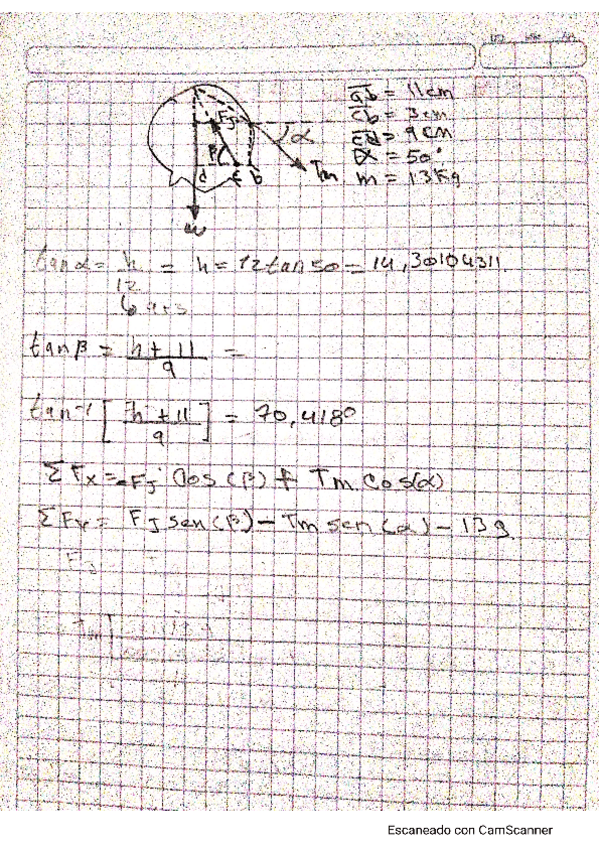 ab = 11cm
cb = 3cm
cd = 9cm
α = 50°
m = 13Kg
FJ
α
β
d c b
Tm
w
tan α = h/12 = h = 12 tan 50 = 14,30104311
tan β = h + 11 / 9 =
tan⁻¹ [ h + 11 / 9 ] = 70,418°
Σ Fx = -FJ Cos (β) + Tm Cos(α)
Σ Fy = FJ sen (β) - Tm sen (α) - 13g
Escaneado con CamScanner